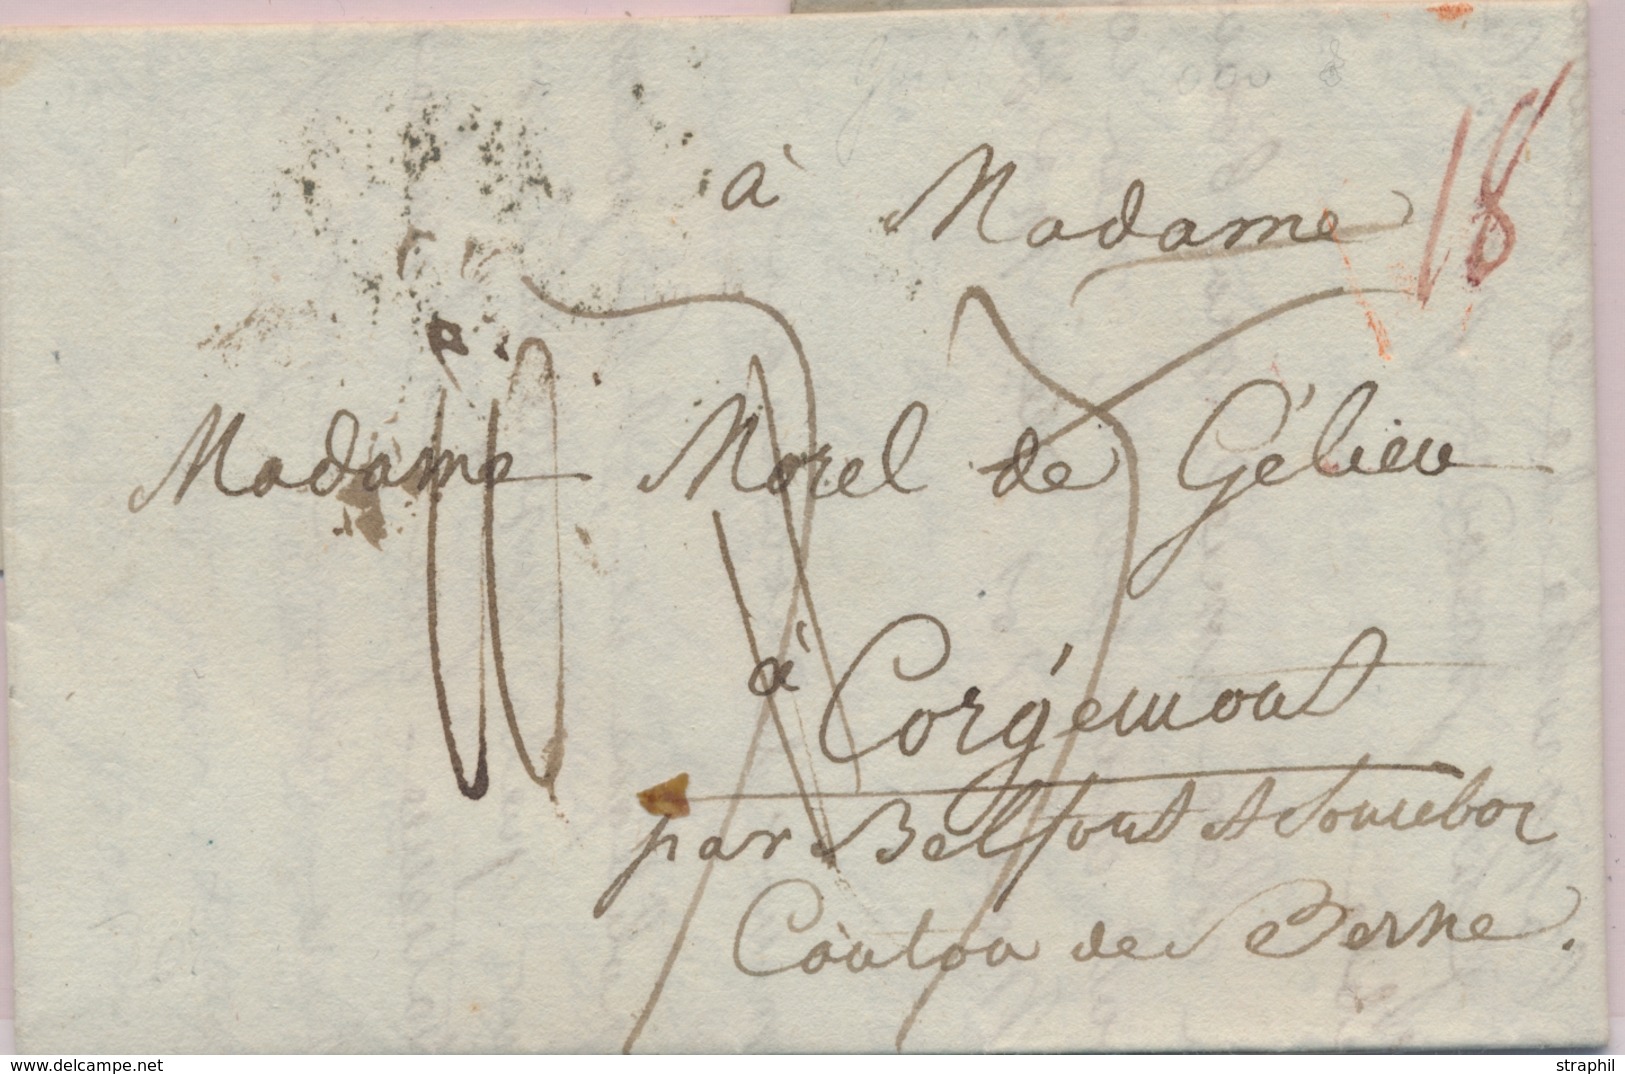 à Madame
18
Madame Morel de Gélieu
à Corgémont
par Belfont et Sonreboz
Canton de Berne.
www.delcampe.net
straphil